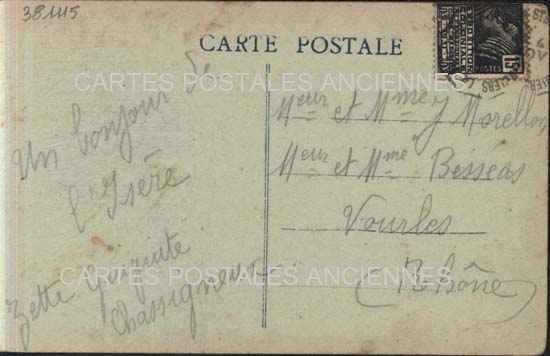 381115
CARTE POSTALE
CARTES POSTALES ANCIENNES
Un bonjour de
l'Isère
Zette
Chassignaux
Meur et Mme J Morellon
Meur et Mme Besseas
Vourles
(Rhône)
CARTES POSTALES ANCIENNES
POSTES
15